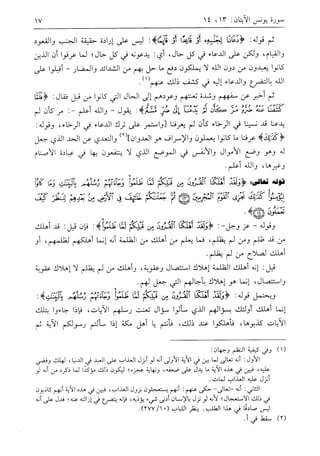 سورة يونس الآيتان: ١٣، ١٤ ١٧
ثم قوله: ﴿دَعَانَا لِجَنْبِهِ أَوْ قَاعِدًا أَوْ قَآئِمًا﴾: ليس على إرادة حقيقة الجنب والقعود
والقيام، ولكن على الدعاء في كل حال، أي: يدعونه في كل حال؛ لما عرفوا أن الذين
كانوا يعبدون من دون الله لا يملكون دفع ما حل بهم من الشدائد والمضار - أقبلوا على
الله بالتضرع والدعاء إليه في كشف ذلك عنهم(١).
ثم أخبر عن سفههم وشدة تعنتهم وعودهم إلى الحال التي كانوا من قبل فقال: ﴿فَلَمَّا
كَشَفْنَا عَنْهُ ضُرَّهُ مَرَّ كَأَن لَّمْ يَدْعُنَآ إِلَىٰ ضُرٍّ مَّسَّهُ﴾: يقول - والله أعلم -: مر كأن لم
يدعنا قد نسينا في الرخاء كأن لم يعرفنا [واستمر على ترك الدعاء في الرخاء، وقوله:
﴿كَذَٰلِكَ﴾ عرفنا ما كانوا يعملون والإسراف هو العدوان](٢) والتعدي عن الحد الذي جعل
له وهو وضع الأموال والأنفس في الموضع الذي لا ينتفعون بها في عبادة الأصنام
وغيرها، والله أعلم.
قوله تعالى: ﴿وَلَقَدْ أَهْلَكْنَا الْقُرُونَ مِن قَبْلِكُمْ لَمَّا ظَلَمُوا۟ وَجَآءَتْهُمْ رُسُلُهُم بِالْبَيِّنَٰتِ وَمَا كَانُوا۟
لِيُؤْمِنُوا۟ كَذَٰلِكَ نَجْزِى الْقَوْمَ الْمُجْرِمِينَ ثُمَّ جَعَلْنَٰكُمْ خَلَٰٓئِفَ فِى الْأَرْضِ مِنۢ بَعْدِهِمْ لِنَنظُرَ كَيْفَ
تَعْمَلُونَ﴾.
وقوله - عز وجل-: ﴿وَلَقَدْ أَهْلَكْنَا الْقُرُونَ مِن قَبْلِكُمْ لَمَّا ظَلَمُوا۟﴾: فإن قيل: قد أهلك
من قد ظلم ومن لم يظلم، فما يعلم من أهلك من الظلمة أنه إنما أهلكهم لظلمهم، أو
أهلك لصلاح من لم يظلم.
قيل: إنه أهلك الظلمة إهلاك استئصال وعقوبة، وأهلك من لم يظلم لا إهلاك عقوبة
واستئصال، إنما هو إهلاك بآجالهم التي جعل لهم.
ويحتمل قوله: ﴿وَلَقَدْ أَهْلَكْنَا الْقُرُونَ مِن قَبْلِكُمْ لَمَّا ظَلَمُوا۟ وَجَآءَتْهُمْ رُسُلُهُم بِالْبَيِّنَٰتِ﴾:
إنما أهلك أولئك بسؤالهم الذي سألوا سؤال تعنت رسلهم الآيات، فإذا جاءوا بتلك
الآيات كذبوها، فأهلكوا عند ذلك، فأنتم يا أهل مكة إذا سألتم رسولكم الآية ثم
(١) وفي كيفية النظم وجهان:
الأول: أنه تعالى لما بين في الآية الأولى أنه لو أنزل العذاب على العبد في الدنيا، لهلك وقضي
عليه، فبين في هذه الآية ما يدل على ضعفه، ونهاية عجزه؛ ليكون ذلك مؤكدًا لما ذكره من أنه لو
أنزل عليه العذاب لمات.
الثاني: أنه -تعالى- حكى عنهم: أنهم يستعجلون نزول العذاب، فبين في هذه الآية أنهم كاذبون
في ذلك الاستعجال؛ لأنه لو نزل بالإنسان أدنى شيء يؤذيه، فإنه يتضرع في إزالته عنه؛ فدل على أنه
ليس صادقًا في هذا الطلب. ينظر اللباب (١٠/٢٧٧).
(٢) سقط في أ.